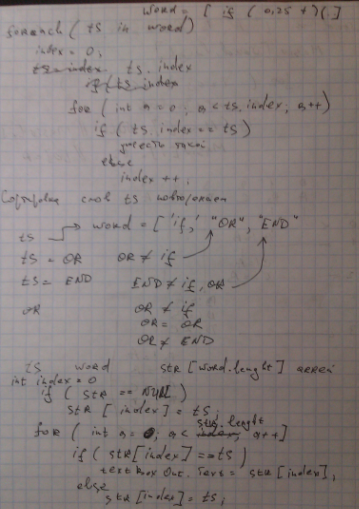 word = [ if ( 0,25 + )( . ]
foreach ( ts in word )
index = 0;
ts index ts . index
if ( ts . index
for ( int a = 0 ; a < ts . index ; a ++ )
if ( ts . index == ts )
else
index ++ ;
слов ts
ts word = [ 'if,' "OR", "END"
ts = OR OR ≠ if
ts = END END ≠ if , OR
OR OR ≠ if
OR = OR
OR ≠ END
ts word str [ word . lenght ]
int index = 0
if ( str == NULL )
str [ index ] = ts ;
str . lenght
for ( int a = 0 ; a < index a ++ ]
if ( str [ index ] == ts )
text Box Out . Text = str [ index ] ;
else
str [ index ] = ts ;